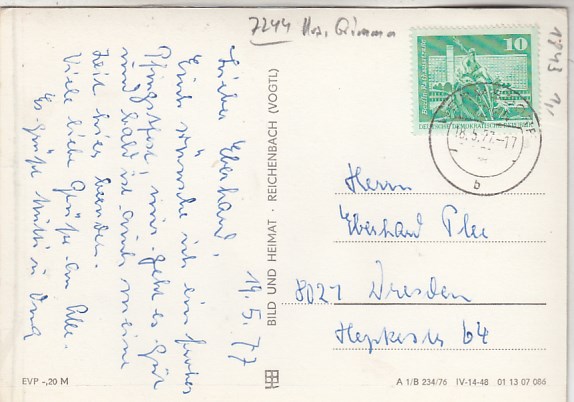 7244
1943
Lieber Eberhard,
19.5.77
Euch wünsche ich ein frohes
Pfingstfest, mir geht es gut
und bald ist auch meine
Zeit hier beendet.
Viele liebe Grüße an alle.
Es grüßt Mutti u. Oma
BILD UND HEIMAT · REICHENBACH (VOGTL)
10
Berlin, Rathausstraße
DEUTSCHE DEMOKRATISCHE REPUBLIK
18.5.77-17
b
Herrn
Eberhard
8021 Dresden
64
EVP -,20 M
A 1/B 234/76 IV-14-48 01 13 07 086